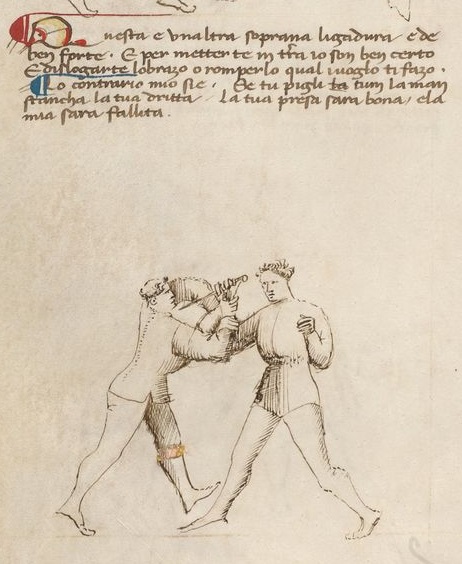 Questa e unaltra soprana ligadura e de
ben forte. E per metter te in tr̃a io son ben certo
E dislogarte lo brazo o romperlo qual voglio ti fazo.
Lo contrario mio sie. Se tu pigli ta tum la man
stancha la tua dritta La tua presa sara bona, e la
mia sara fallita.